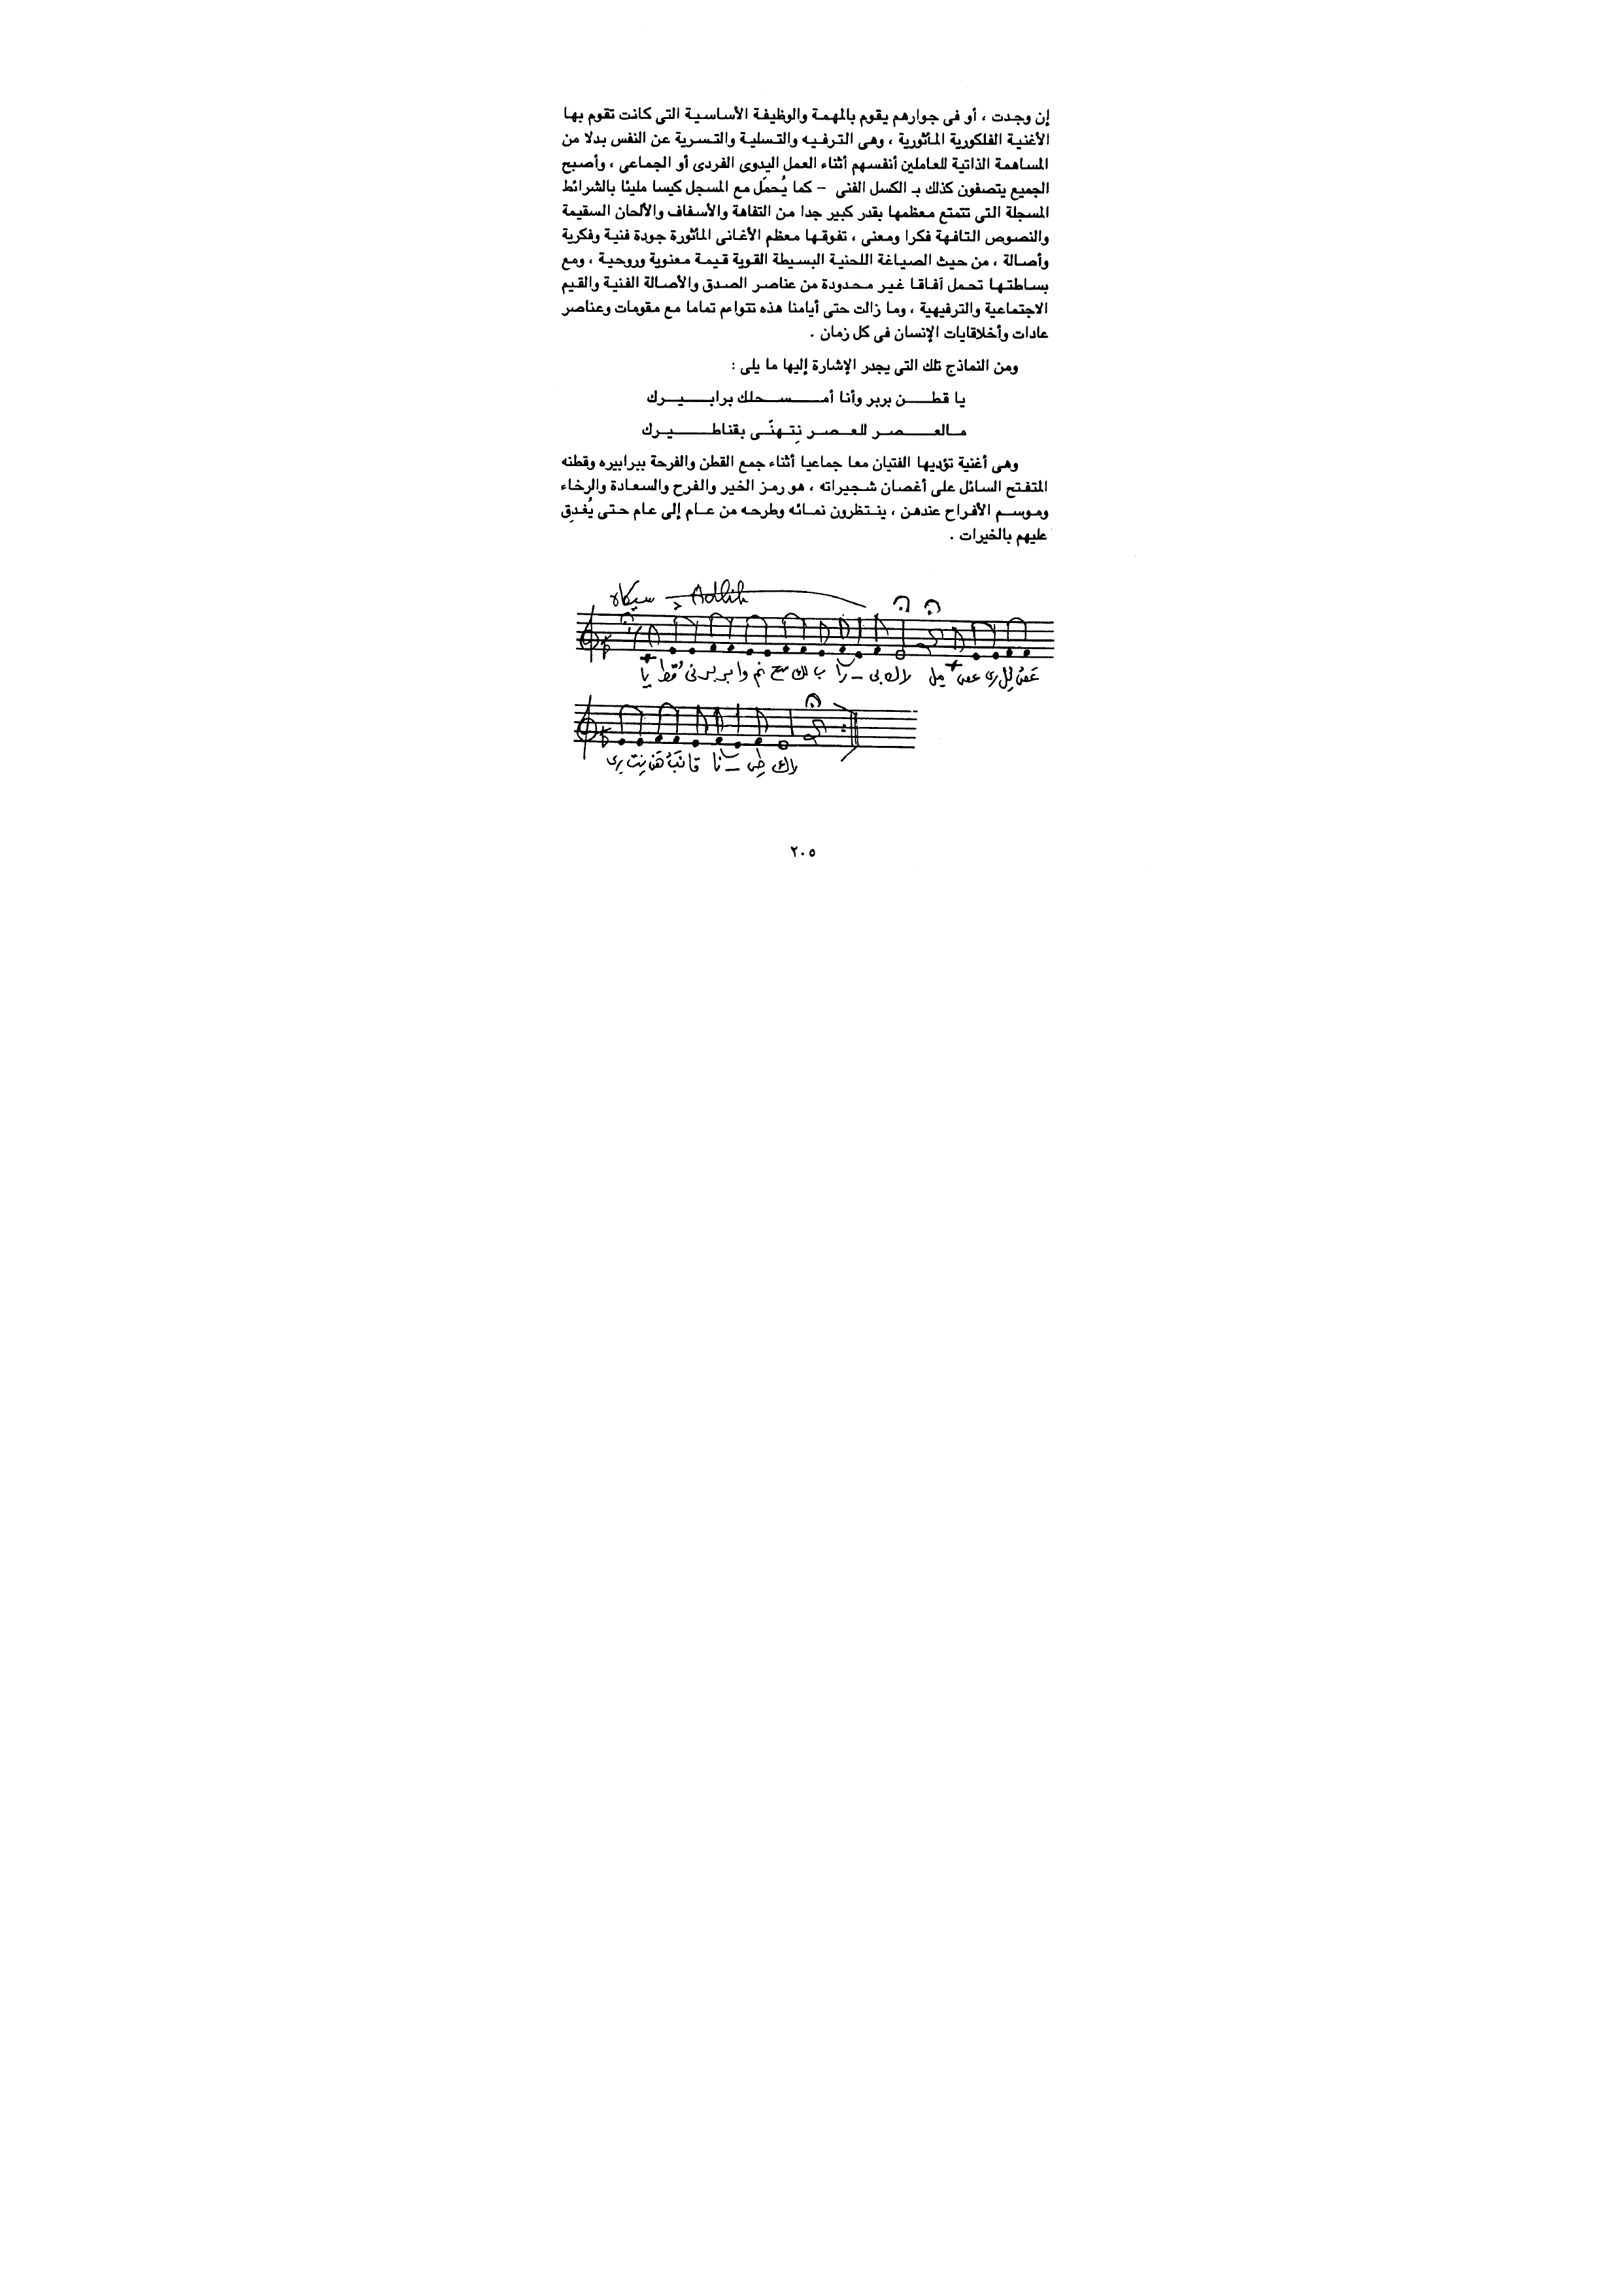 إن وجدت ، أو فى جوارهم يقوم بالمهمة والوظيفة الأساسية التى كانت تقوم بها
الأغنية الفلكورية المأثورية ، وهى الترفيه والتسلية والتسرية عن النفس بدلا من
المساهمة الذاتية للعاملين أنفسهم أثناء العمل اليدوى الفردى أو الجماعى ، وأصبح
الجميع يتصفون كذلك بـ الكسل الفنى – كما يُحمَل مع المسجل كيسا مليئا بالشرائط
المسجلة التى تتمتع معظمها بقدر كبير جدا من التفاهة والأسفاف والألحان السقيمة
والنصوص التافهة فكرا ومعنى ، تفوقها معظم الأغانى المأثورة جودة فنية وفكرية
وأصالة ، من حيث الصياغة اللحنية البسيطة القوية قيمة معنوية وروحية ، ومع
بساطتها تحمل آفاقا غير محدودة من عناصر الصدق والأصالة الفنية والقيم
الاجتماعية والترفيهية ، وما زالت حتى أيامنا هذه تتواءم تماما مع مقومات وعناصر
عادات وأخلاقايات الإنسان فى كل زمان .
ومن النماذج تلك التى يجدر الإشارة إليها ما يلى :
يا قطـــن بربر وأنا أمـــسـحلك برابـــيـــرك
مـالعـــصـر للعـصـر نِتـهنّـى بقناطـــيـرك
وهى أغنية تؤديها الفتيان معا جماعيا أثناء جمع القطن والفرحة ببرابيره وقطنه
المتفتح السائل على أغصان شجيراته ، هو رمز الخير والفرح والسعادة والرخاء
وموسم الأفراح عندهن ، ينتظرون نمائه وطرحه من عام إلى عام حتى يُغدِق
عليهم بالخيرات .
سيكاه Adlib
٢٠٥